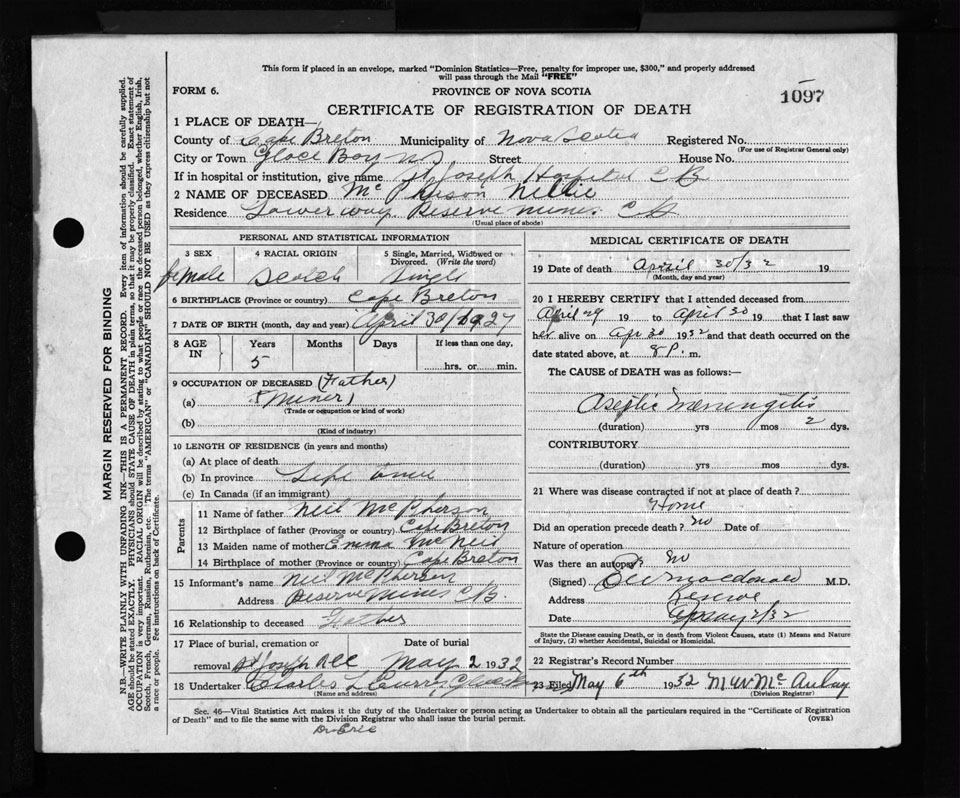 This form if placed in an envelope, marked "Dominion Statistics—Free, penalty for improper use, $300," and properly addressed
will pass through the Mail "FREE"
FORM 6.
PROVINCE OF NOVA SCOTIA
1097
CERTIFICATE OF REGISTRATION OF DEATH
1 PLACE OF DEATH—
County of Cape Breton Municipality of Nova Scotia Registered No.
(For use of Registrar General only)
City or Town Glace Bay N S Street House No.
If in hospital or institution, give name St Joseph Hospital C B
2 NAME OF DECEASED Mc Pherson Nellie
Residence Reserve Mines C B
(Usual place of abode)
PERSONAL AND STATISTICAL INFORMATION
3 SEX 4 RACIAL ORIGIN 5 Single, Married, Widowed or Divorced. (Write the word)
female Scotch Single
6 BIRTHPLACE (Province or country) Cape Breton
7 DATE OF BIRTH (month, day and year) April 30/1927
8 AGE IN Years Months Days If less than one day,
5 hrs. or min.
9 OCCUPATION OF DECEASED (Father)
(a) (Miner)
(Trade or occupation or kind of work)
(b)
(Kind of industry)
10 LENGTH OF RESIDENCE (in years and months)
(a) At place of death
(b) In province Life time
(c) In Canada (if an immigrant)
Parents
11 Name of father Neil McPherson
12 Birthplace of father (Province or country) Cape Breton
13 Maiden name of mother Emma McNeil
14 Birthplace of mother (Province or country) Cape Breton
15 Informant's name Neil McPherson
Address Reserve Mines C B.
16 Relationship to deceased Father
17 Place of burial, cremation or Date of burial
removal St Joseph May 2 1932
18 Undertaker Charles L Curry
(Name and address)
MEDICAL CERTIFICATE OF DEATH
19 Date of death April 30/32 19
(Month, day and year)
20 I HEREBY CERTIFY that I attended deceased from
April 29 19 to April 30 19 that I last saw
her alive on Apr 30 1932 and that death occurred on the
date stated above, at 8 P. m.
The CAUSE of DEATH was as follows:—
Aseptic Meningitis
(duration) yrs mos 2 dys.
CONTRIBUTORY
(duration) yrs mos dys.
21 Where was disease contracted if not at place of death?
Home
Did an operation precede death? no Date of
Nature of operation
Was there an autopsy? no
(Signed) Macdonald M.D.
Address Reserve
Date May 2/32
State the Disease causing Death, or in death from Violent Causes, state (1) Means and Nature
of Injury, (2) whether Accidental, Suicidal or Homicidal.
22 Registrar's Record Number
23 Filed May 6th 1932 M W McAulay
(Division Registrar)
Sec. 46—Vital Statistics Act makes it the duty of the Undertaker or person acting as Undertaker to obtain all the particulars required in the "Certificate of Registration
of Death" and to file the same with the Division Registrar who shall issue the burial permit.
(OVER)
MARGIN RESERVED FOR BINDING
N.B.—WRITE PLAINLY WITH UNFADING INK—THIS IS A PERMANENT RECORD. Every item of information should be carefully supplied.
AGE should be stated EXACTLY. PHYSICIANS should STATE CAUSE OF DEATH in plain terms, so that it may be properly classified. Exact statement of
OCCUPATION is very important. RACIAL ORIGIN will be described by stating to what people or race the deceased person belonged, whether English, Irish,
Scotch, French, German, Russian, Ruthenian, etc. The terms "AMERICAN" or "CANADIAN" SHOULD NOT BE USED as they express citizenship but not
a race or people. See instructions on back of Certificate.